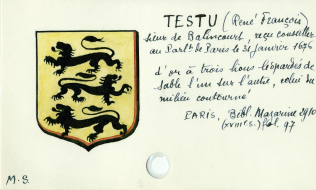 TESTU (René François)
sieur de Balincourt, reçu conseiller
au Parlt de Paris le 31 janvier 1676
d'or à trois lions léopardés de
sable l'un sur l'autre, celui du
milieu contourné
PARIS, Bibl. Mazarine
(XVIIIe s.) fol. 97
M.S.